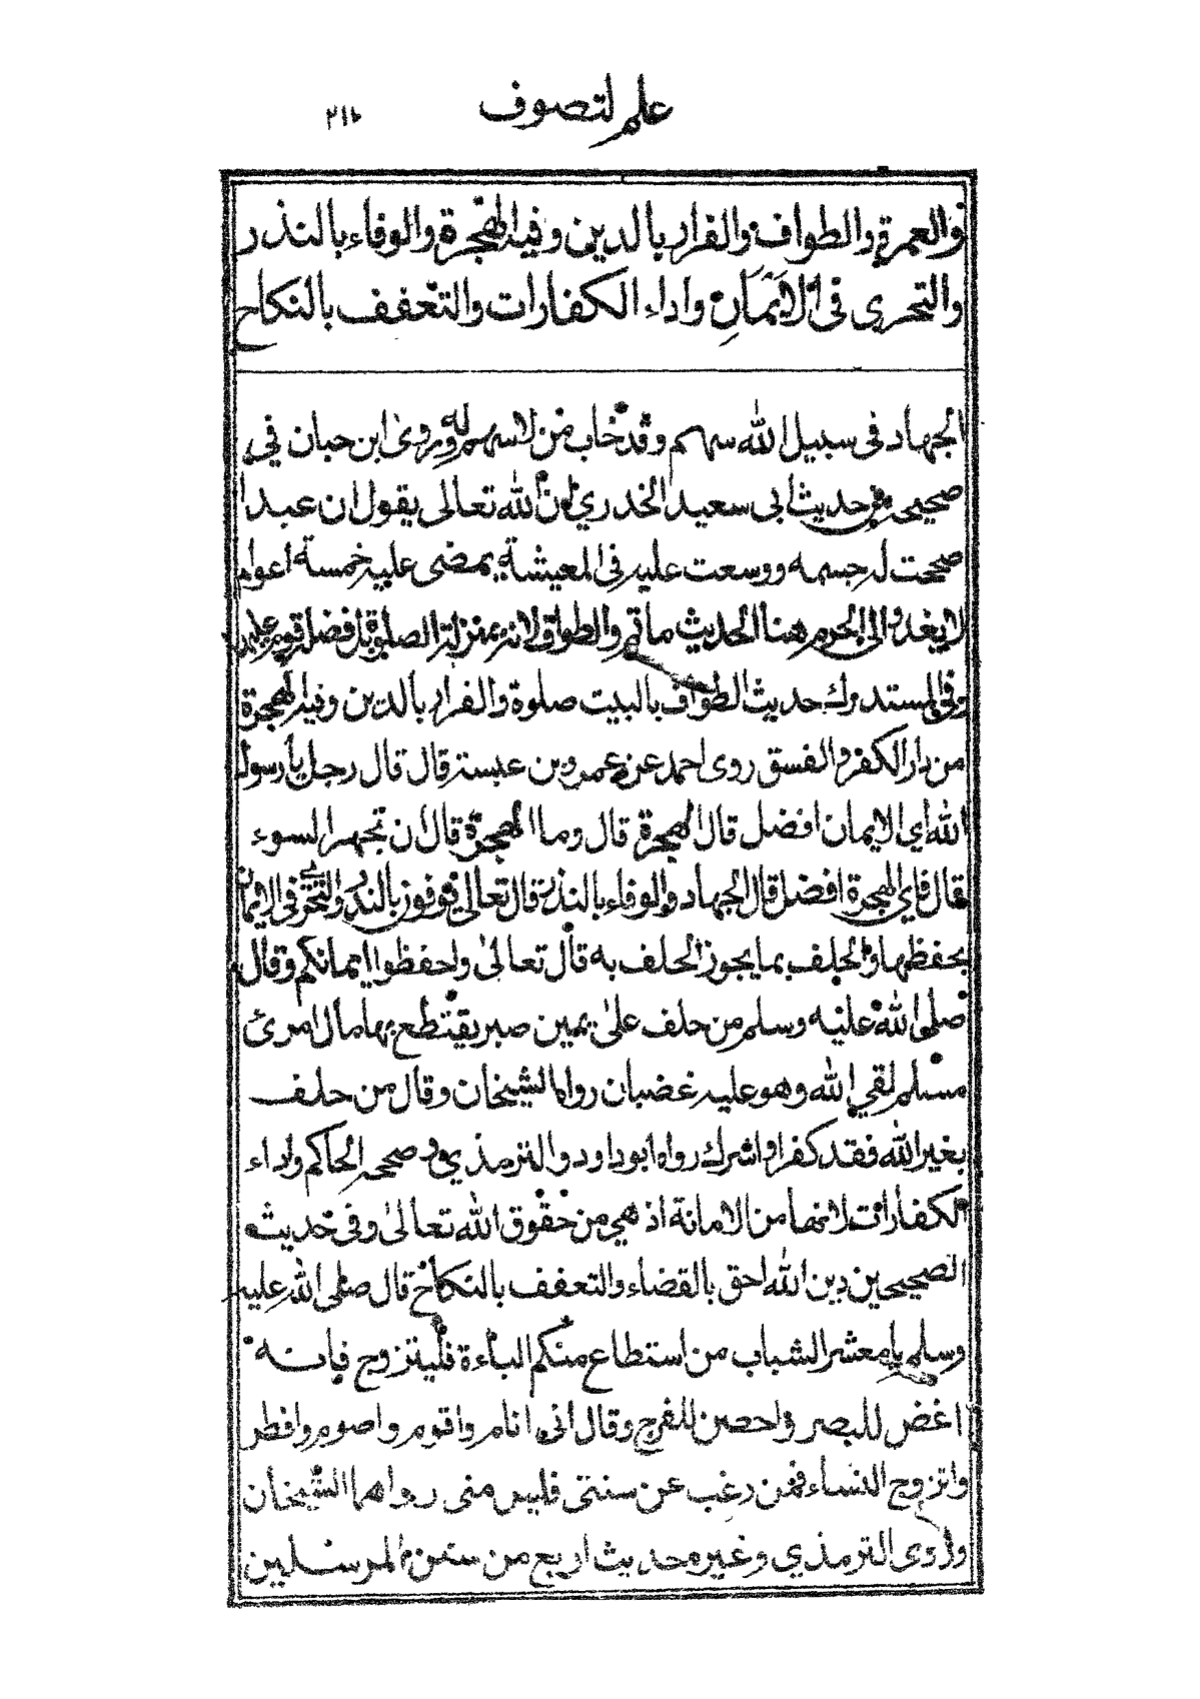 علم التصوف
والعمرة والطواف والفرار بالدين وفيه الهجرة والوفاء بالنذر
والتحرى فى الايمان واداء الكفارات والتعفف بالنكاح
الجهاد فى سبيل الله سهم وقد خاب من لاسهم له وروى ابن حبان في
صحيحه من حديث ابى سعيد الخدري ان الله تعالى يقول ان عبدا
صححت له جسمه ووسعت عليه فى المعيشة يمضى عليه خمسة اعوام
لا يغدو الى الحرم هذا الحديث والطواف لانه بمنزلة الصلوة بل افضل
وفى المستدرك حديث الطواف بالبيت صلوة والفرار بالدين وفيه الهجرة
من دار الكفر والفسق روى احمد عن عمرو بن عبسة قال قال رجل يا رسول
الله اي الايمان افضل قال الهجرة قال وما الهجرة قال ان تهجر السوء
قال فاي الهجرة افضل قال الجهاد والوفاء بالنذر قال تعالى يوفون بالنذر والتحرى فى الايمان
بحفظها والحلف بما يجوز الحلف به قال تعالىٰ واحفظوا ايمانكم وقال
صلى الله عليه وسلم من حلف علىٰ يمين صبر يقتطع بها مال امرئ
مسلم لقي الله وهو عليه غضبان رواه الشيخان وقال من حلف
بغير الله فقد كفر او اشرك رواه ابو داود والترمذي وصححه الحاكم واداء
الكفارات لانها من الامانة اذ هي من حقوق الله تعالىٰ وفى حديث
الصحيحين دين الله احق بالقضاء والتعفف بالنكاح قال صلى الله عليه
وسلم يا معشر الشباب من استطاع منكم الباءة فليتزوج فانه
اغض للبصر واحصن للفرج وقال انى انام واقوم واصوم وافطر
واتزوج النساء فمن رغب عن سنتى فليس منى رواهما الشيخان
وروى الترمذي وغيره حديث اربع من سنن المرسلين